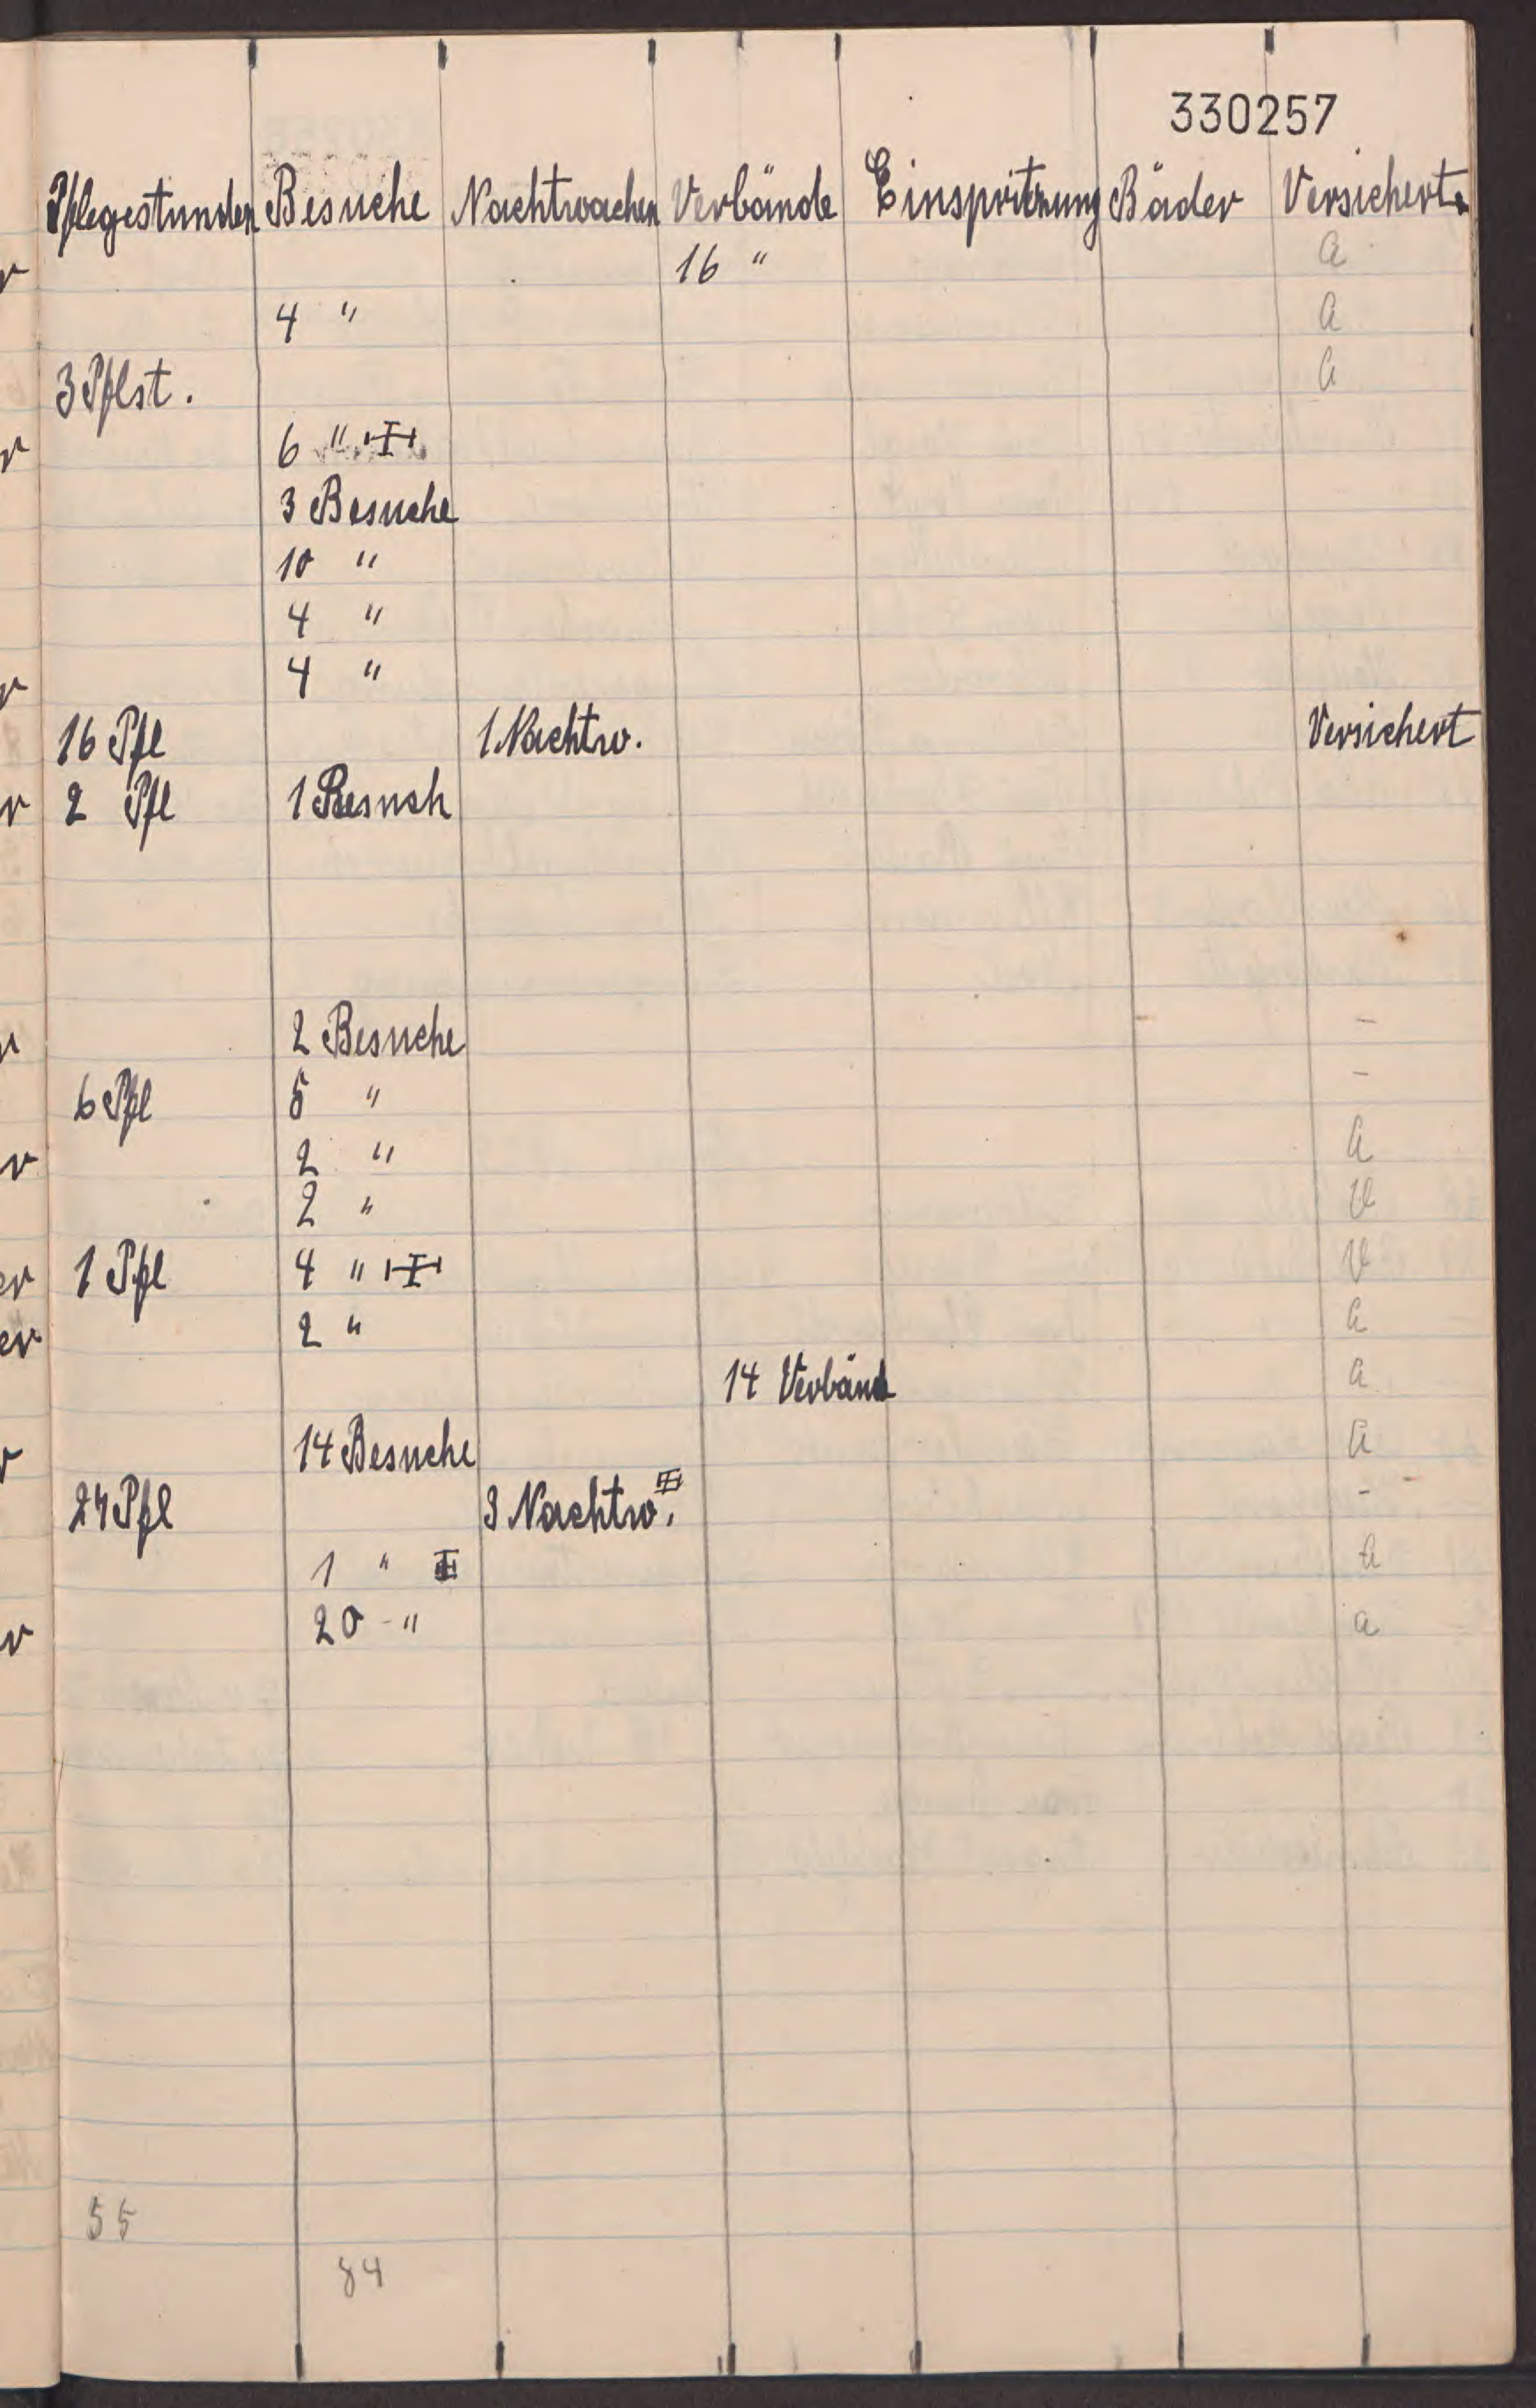 330257
Pflegestunden Besuche Nachtwachen Verbände Einspritzung Bäder Versichert.
16 " a
4 " a
3 Pflst. a
6 "
3 Besuche
10 "
4 "
4 "
16 Pfl 1 Nachtw. Versichert
2 Pfl 1 Besuch
2 Besuche -
6 Pfl 5 " -
2 " a
2 " V
1 Pfl 4 " V
2 " a
14 Verbänd a
14 Besuche a
27 Pfl 3 Nachtw. -
1 " a
20 - " a
55
84